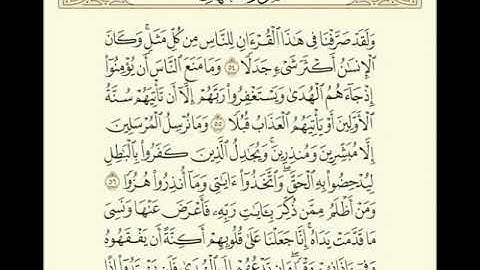 وَلَقَدْ صَرَّفْنَا فِي هَٰذَا ٱلْقُرْءَانِ لِلنَّاسِ مِن كُلِّ مَثَلٍۚ وَكَانَ
ٱلْإِنسَٰنُ أَكْثَرَ شَيْءٍ جَدَلًا ٥٤ وَمَا مَنَعَ ٱلنَّاسَ أَن يُؤْمِنُوٓا۟
إِذْ جَآءَهُمُ ٱلْهُدَىٰ وَيَسْتَغْفِرُوا۟ رَبَّهُمْ إِلَّآ أَن تَأْتِيَهُمْ سُنَّةُ
ٱلْأَوَّلِينَ أَوْ يَأْتِيَهُمُ ٱلْعَذَابُ قُبُلًا ٥٥ وَمَا نُرْسِلُ ٱلْمُرْسَلِينَ
إِلَّا مُبَشِّرِينَ وَمُنذِرِينَۚ وَيُجَٰدِلُ ٱلَّذِينَ كَفَرُوا۟ بِٱلْبَٰطِلِ
لِيُدْحِضُوا۟ بِهِ ٱلْحَقَّۖ وَٱتَّخَذُوٓا۟ ءَايَٰتِي وَمَآ أُنذِرُوا۟ هُزُوًا ٥٦
وَمَنْ أَظْلَمُ مِمَّن ذُكِّرَ بِـَٔايَٰتِ رَبِّهِۦ فَأَعْرَضَ عَنْهَا وَنَسِيَ
مَا قَدَّمَتْ يَدَاهُۚ إِنَّا جَعَلْنَا عَلَىٰ قُلُوبِهِمْ أَكِنَّةً أَن يَفْقَهُوهُ
وَفِيٓ ءَاذَانِهِمْ وَقْرًاۖ وَإِن تَدْعُهُمْ إِلَى ٱلْهُدَىٰ فَلَن يَهْتَدُوٓا۟ إِذًا